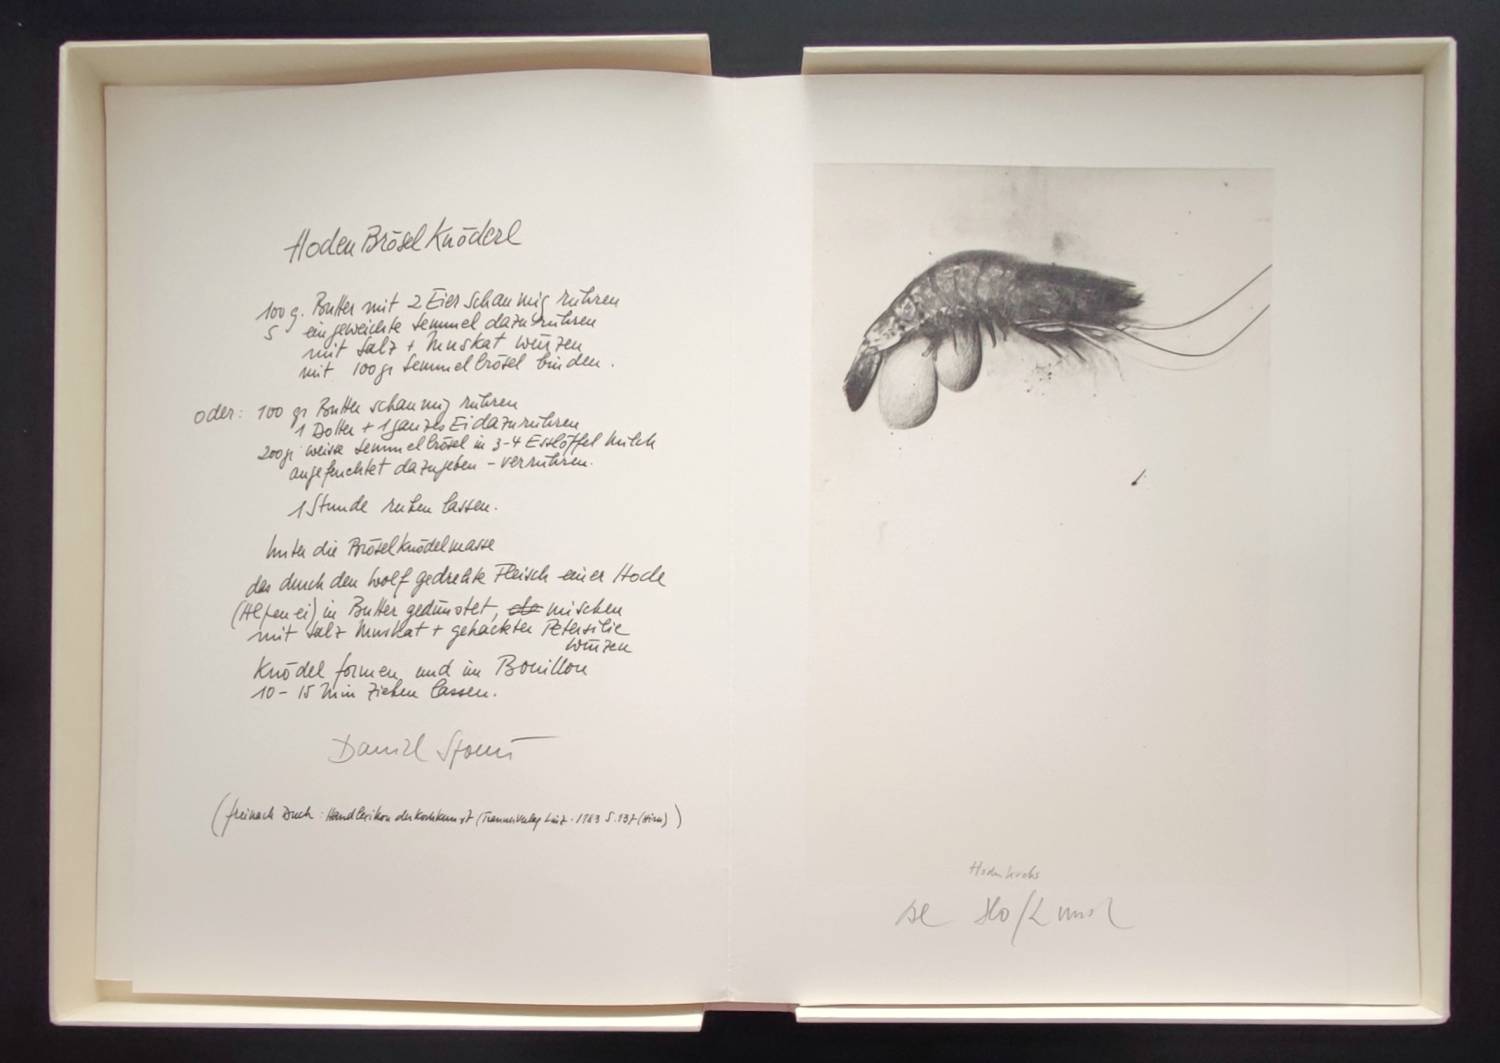 Hoden Brösel Knöderl
100 g. Butter mit 2 Eier schaumig rühren
5 eingeweichte Semmel dazurühren
mit Salz + Muskat würzen
mit 100 gr Semmelbrösel binden.
oder: 100 gr Butter schaumig rühren
1 Dotter + 1 ganzes Ei dazurühren
200 gr weisse Semmelbrösel in 3-4 Esslöffel Milch
angefeuchtet dazugeben - verrühren.
1 Stunde ruhen lassen.
Unter die Bröselknödelmasse
das durch den Wolf gedrehte Fleisch einer Hode
in Butter gedünstet, mischen
mit Salz Muskat + gehackter Petersilie
würzen
Knödel formen und in Bouillon
10-15 Min ziehen lassen.
Daniel Spoerri
(frei nach Duch: Handlexikon der Kochkunst (Trauner Verlag Linz. 1963 S. 137 (Hirn))
Hodenkrebs